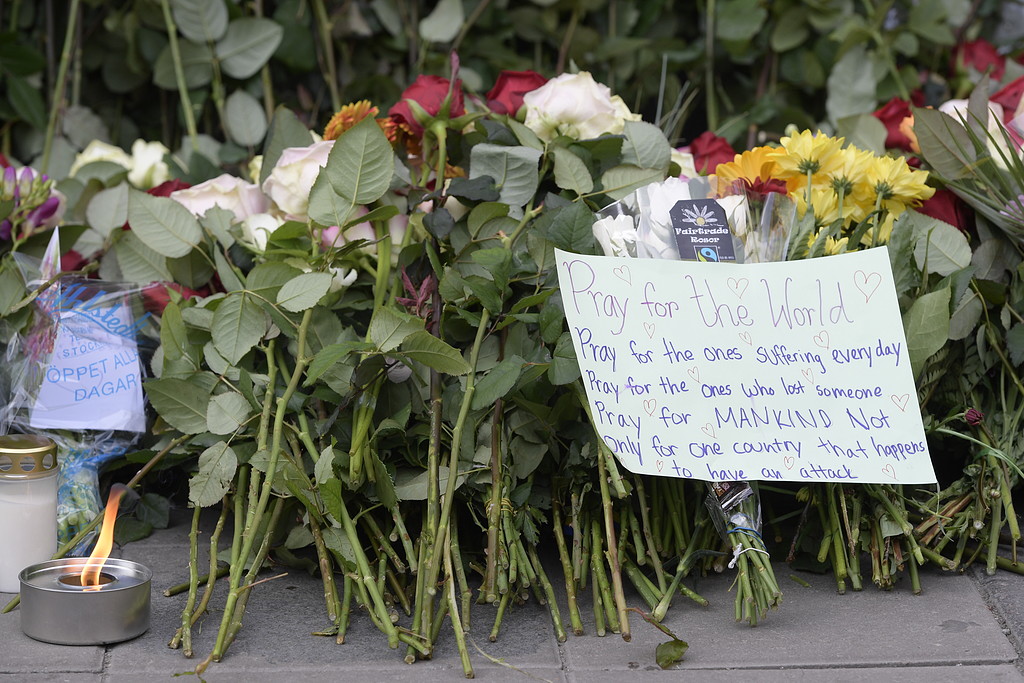 Fairtrade
Rosor
Pray for the World
Pray for the ones suffering everyday
Pray for the ones who lost someone
Pray for MANKIND Not
only for one country that happens
to have an attack
ÖPPET ALLA
DAGAR